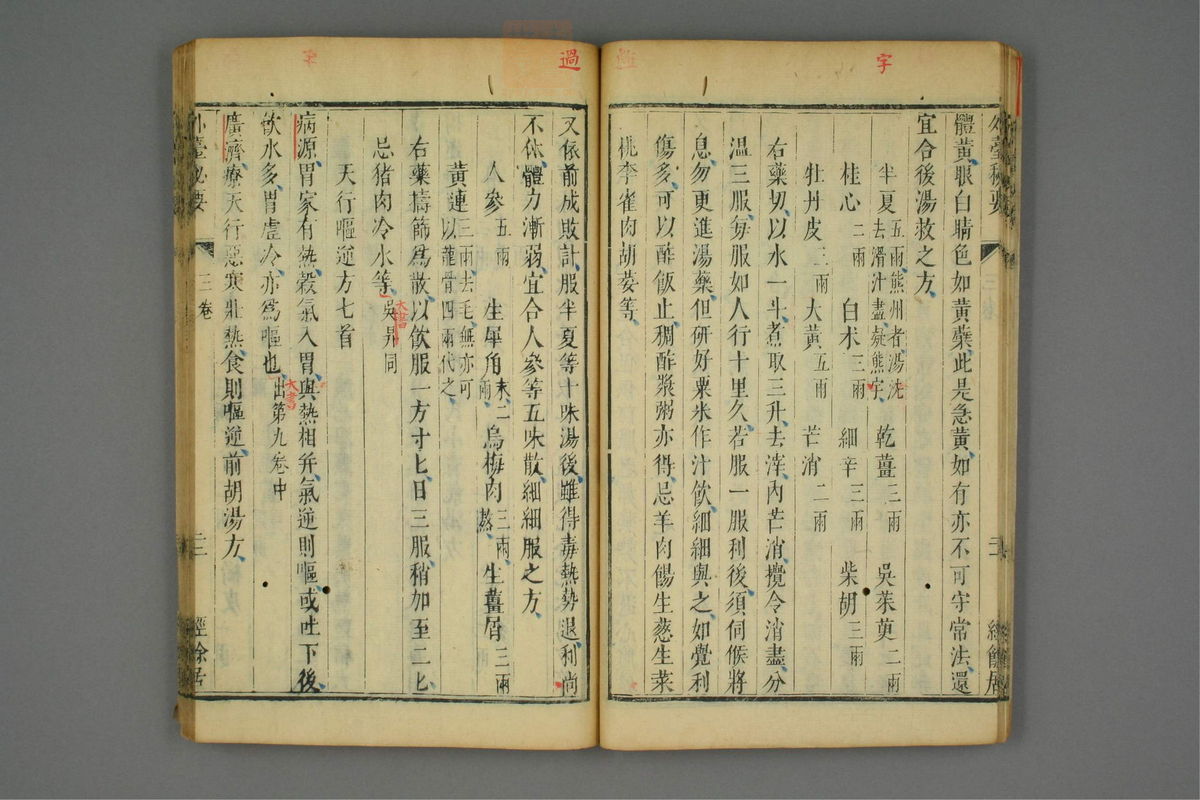 字
體黃眼白睛色如黃蘗此是急黃如有亦不可守常法還
宜合後湯救之方
半夏五兩熊州者湯洗去滑汁盡凝熊字 乾薑三兩 吳茱萸二兩
桂心二兩 白朮三兩 細辛三兩 柴胡三兩
牡丹皮二兩 大黃五兩 芒消二兩
右藥切以水一斗煮取三升去滓內芒消攪令消盡分
溫三服每服如人行十里久若服一服利後須伺候將
息勿更進湯藥但研好粟米作汁飲細細與之如覺利
傷多可以酢飲止稠酢漿粥亦得忌羊肉餳生蔥生菜
桃李雀肉胡荽等
過
又依前成敗計服半夏等十味湯後雖得毒熱勢退利尚
不依體力漸弱宜合人參等五味散細細服之方
人參五兩 生犀角末二兩 烏梅肉三兩熬 生薑屑三兩
黃連三兩去毛無亦可以龍骨四兩代之
右藥擣篩為散以飲服一方寸匕日三服稍加至二匕
忌豬肉冷水等吳昇同
大書
天行嘔逆方七首
病源胃家有熱穀氣入胃與熱相并氣逆則嘔或吐下後
飲水多胃虛冷亦為嘔也出第九卷中
大書
廣濟療天行惡寒壯熱食則嘔逆前胡湯方
外臺祕要 三卷 三 經餘居